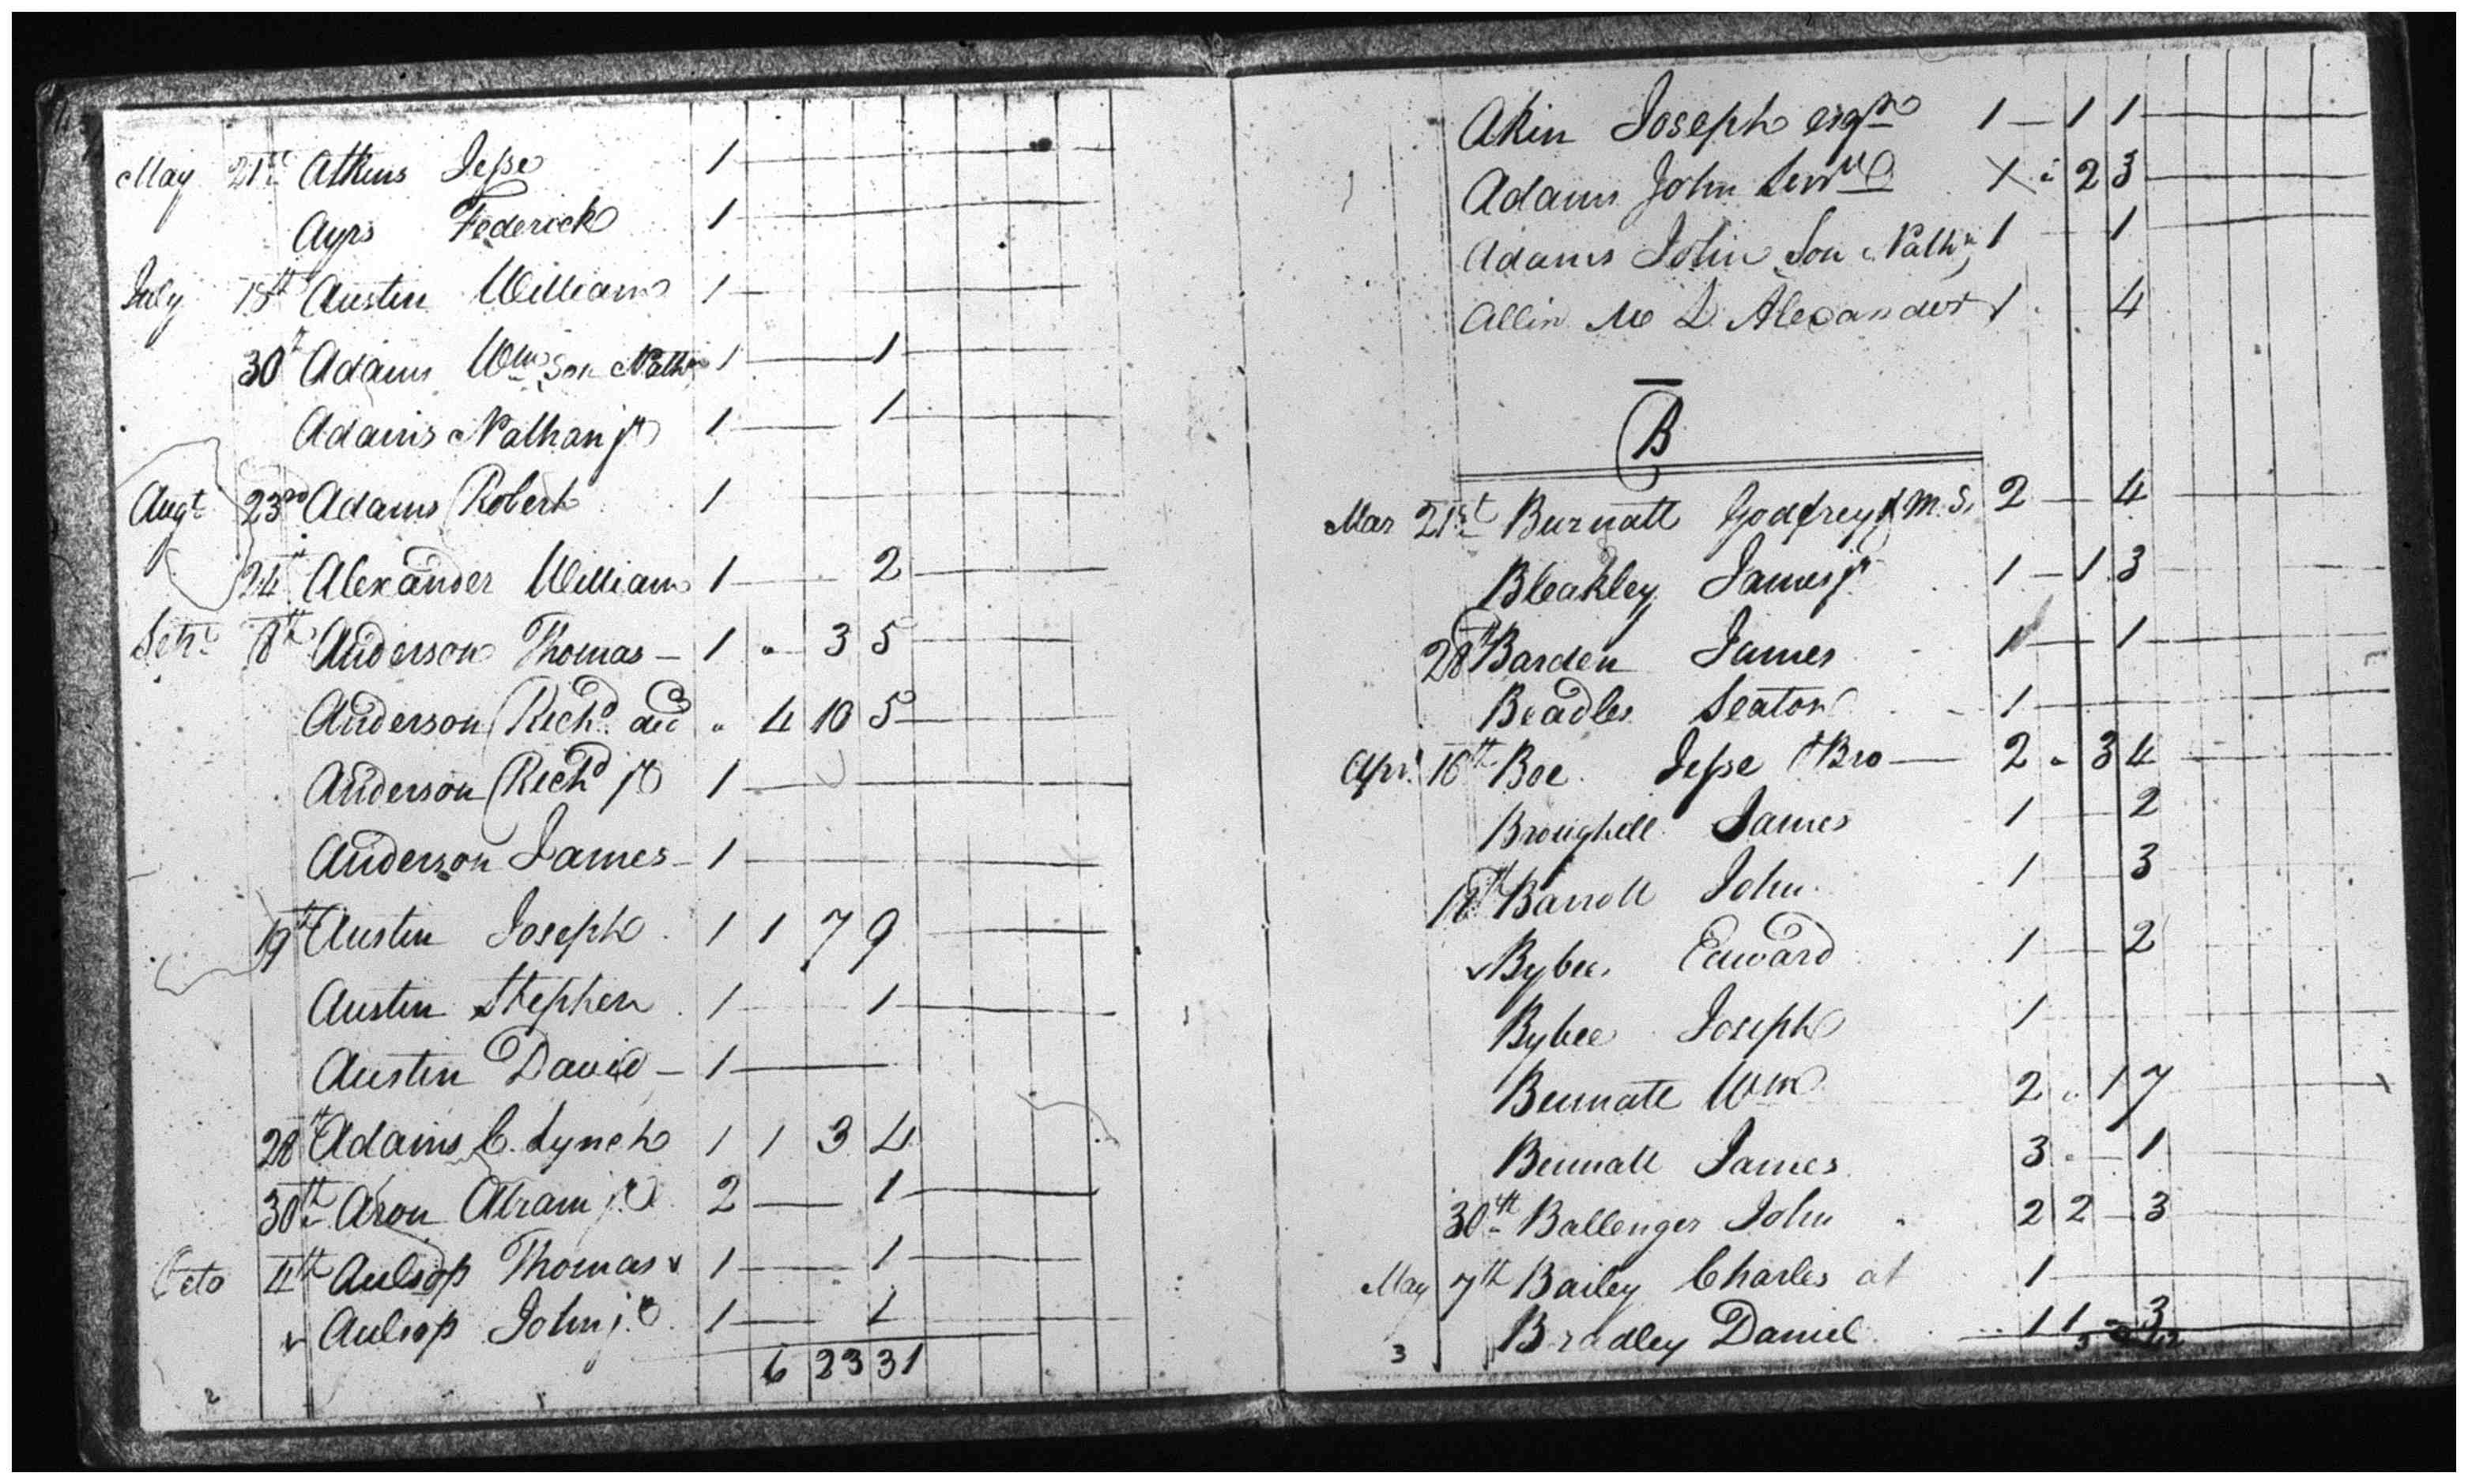 May 21st Atkins Jesse 1
Ayrs Federick 1
July 15th Austin William 1
30th Adams Wm Son Nathn 1 — 1
Adams Nathan jr 1 — 1
Augt 23rd Adams Robert 1
24th Alexander William 1 — 2
Sepr 8th Anderson Thomas — 1 " 3 5
Anderson Richd " 4 10 5
Anderson Richd jr 1
Anderson James — 1
19th Austin Joseph 1 1 7 9
Austin Stephen 1 — 1
Austin David — 1
28th Adams C. Lynch 1 1 3 4
30th Aron Abram jr 2 — 1
Octo 4th Aulsop Thomas 1 — 1
Aulsop John jr 1 — 1
6 23 31
2
Akin Joseph esqr 1 — 1 1
Adams John X " 2 3
Adams John Son Nathn 1 1
Allin Mc D. Alexander 1 4
B
Mar 21st Burnatt Godfrey & M. S. 2 — 4
Bleakley James jr 1 — 1 3
28th Barden James 1 — 1
Beadles Seaton 1
Apr. 16th Boe Jesse & Bro — 2 " 3 4
Broughell James 1 — 2
18th Barrott John 1 — 3
Bybee Edward 1 — 2
Bybee Joseph 1
Bennatt Wm 2 " 1 7
Bennatt James 3 " — 1
30th Ballenger John 2 2 — 3
May 7th Bailey Charles at 1
Bradley Daniel 1 1 — 3
3